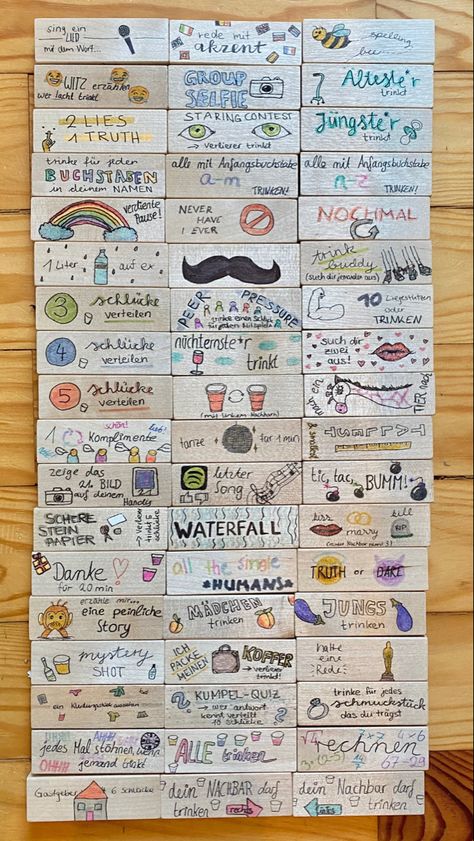 sing ein
LIED
mit dem Wort...
rede mit
akzent
spelling
bee...
WITZ erzählen
wer lacht trinkt
GROUP
SELFIE
Älteste*r
trinkt
2 LIES
1 TRUTH
STARING CONTEST
→ Verlierer trinkt
Jüngste*r
trinkt
trinke für jeden
BUCHSTABEN
in deinem NAMEN
alle mit Anfangsbuchstabe
a-m
TRINKEN!
alle mit Anfangsbuchstabe
n-z
TRINKEN!
verdiente
Pause!
NEVER
HAVE
I EVER
NOCHMAL
1 Liter auf ex
trink
buddy
(such dir jemanden aus)
3 schlücke
verteilen
PEER PRESSURE
10 Liegestützen
oder
TRINKEN
4 schlücke
verteilen
nüchternste*r
trinkt
such dir
zwei
aus!
5 schlücke
verteilen
(mit linkem Nachbarn)
TIER nach
1 Komplimente
schön!
lieb!
tanze für 1 min
zeige das
21. BILD
auf deinem
Handy
letzter
Song
tic, tac, BUMM!
SCHERE
STEIN
PAPIER
WATERFALL
kiss
marry
kill
Danke
für 20 min
all the single
*HUMANS*
TRUTH or DARE
erzähle mir...
eine peinliche
Story
MÄDCHEN
trinken
JUNGS
trinken
mystery
SHOT
ICH
PACKE
MEINEN
KOFFER
→ verlierer
trinkt!
halte
eine
Rede!
ein Kleidungsstück ausziehen
KUMPEL-QUIZ
→ wer antwort
kennt verteilt
10 Schlücke
trinke für jedes
schmuckstück
das du trägst
jedes Mal stöhnen, wenn
jemand trinkt
OHHH
ALLE trinken
rechnen
7×7
4×6
67-29
Gastgeber 6 Schlücke
dein NACHBAR darf
trinken
rechts
dein Nachbar darf
trinken
links